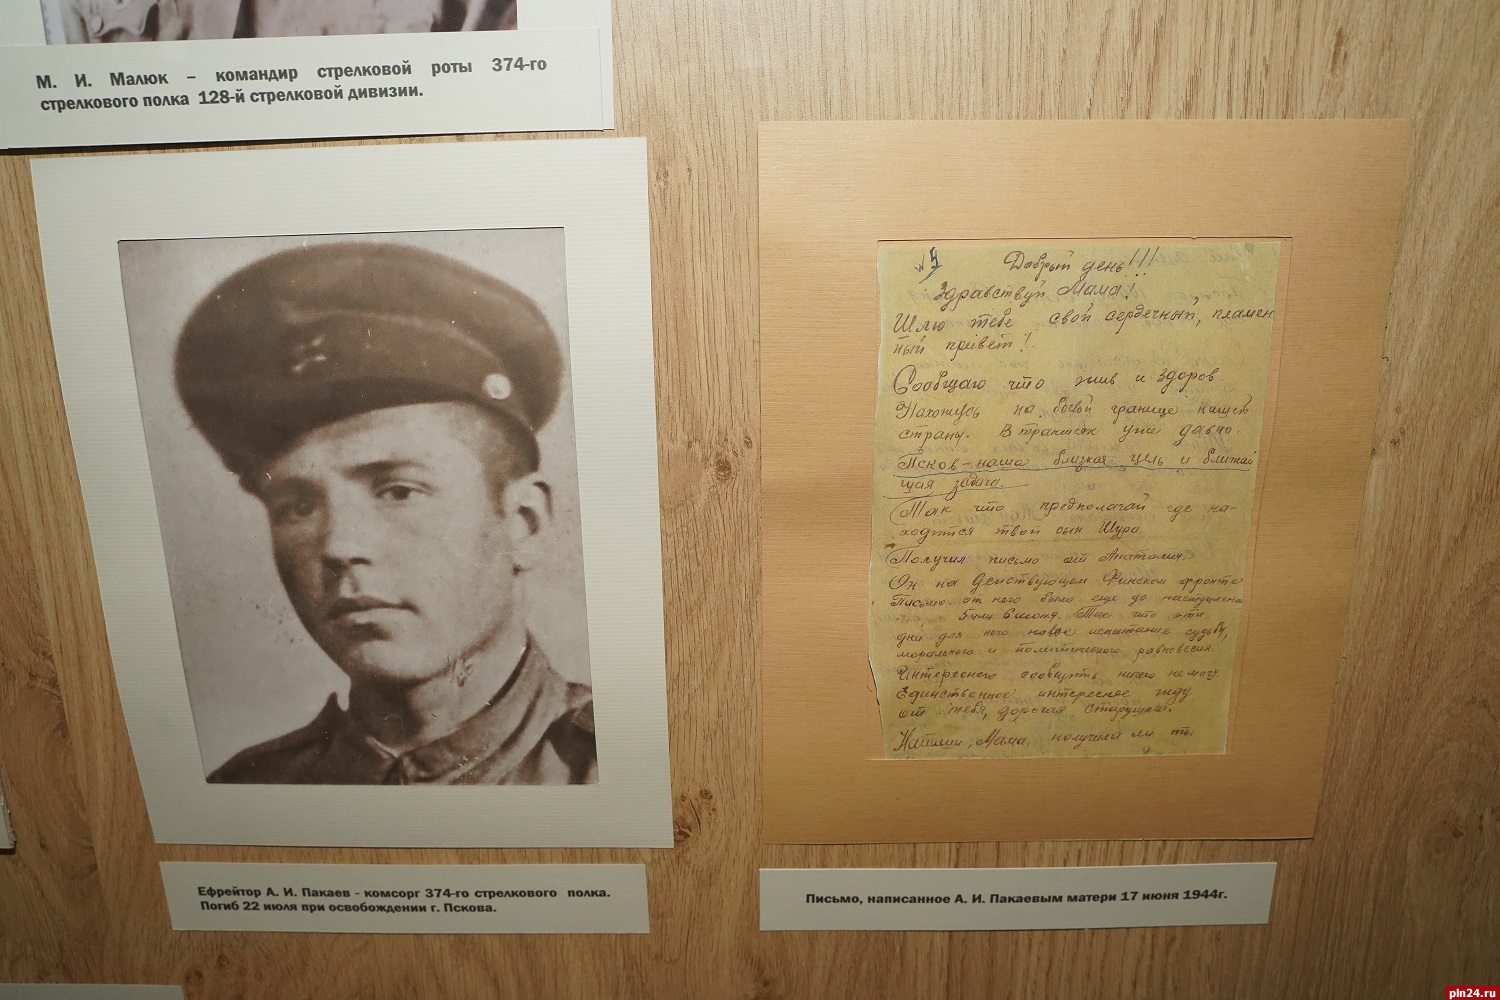 М. И. Малюк – командир стрелковой роты 374-го
стрелкового полка 128-й стрелковой дивизии.
Ефрейтор А. И. Пакаев - комсорг 374-го стрелкового полка.
Погиб 22 июля при освобождении г. Пскова.
Добрый день!!!
Здравствуй Мама!
Шлю тебе свой сердечный, пламен
ный привет!
Сообщаю что жив и здоров.
Нахожусь на боевой границе нашей
страны. В траншеях уже давно.
Псков – наша близкая цель и ближай
шая задача.
Так что предполагай где на-
ходится твой сын Шура.
Получил письмо от Анатолия.
Он на действующем Финском фронте
Письмо от него было еще до наступления
Так что эти
дни для него новое испытание судьбы,
морального и политического равновесия.
Интересного сообщить ничего не могу.
Единственное интересное жду
от тебя, дорогая старушка.
Напиши, Мама, получила ли ты
Письмо, написанное А. И. Пакаевым матери 17 июня 1944г.
pln24.ru